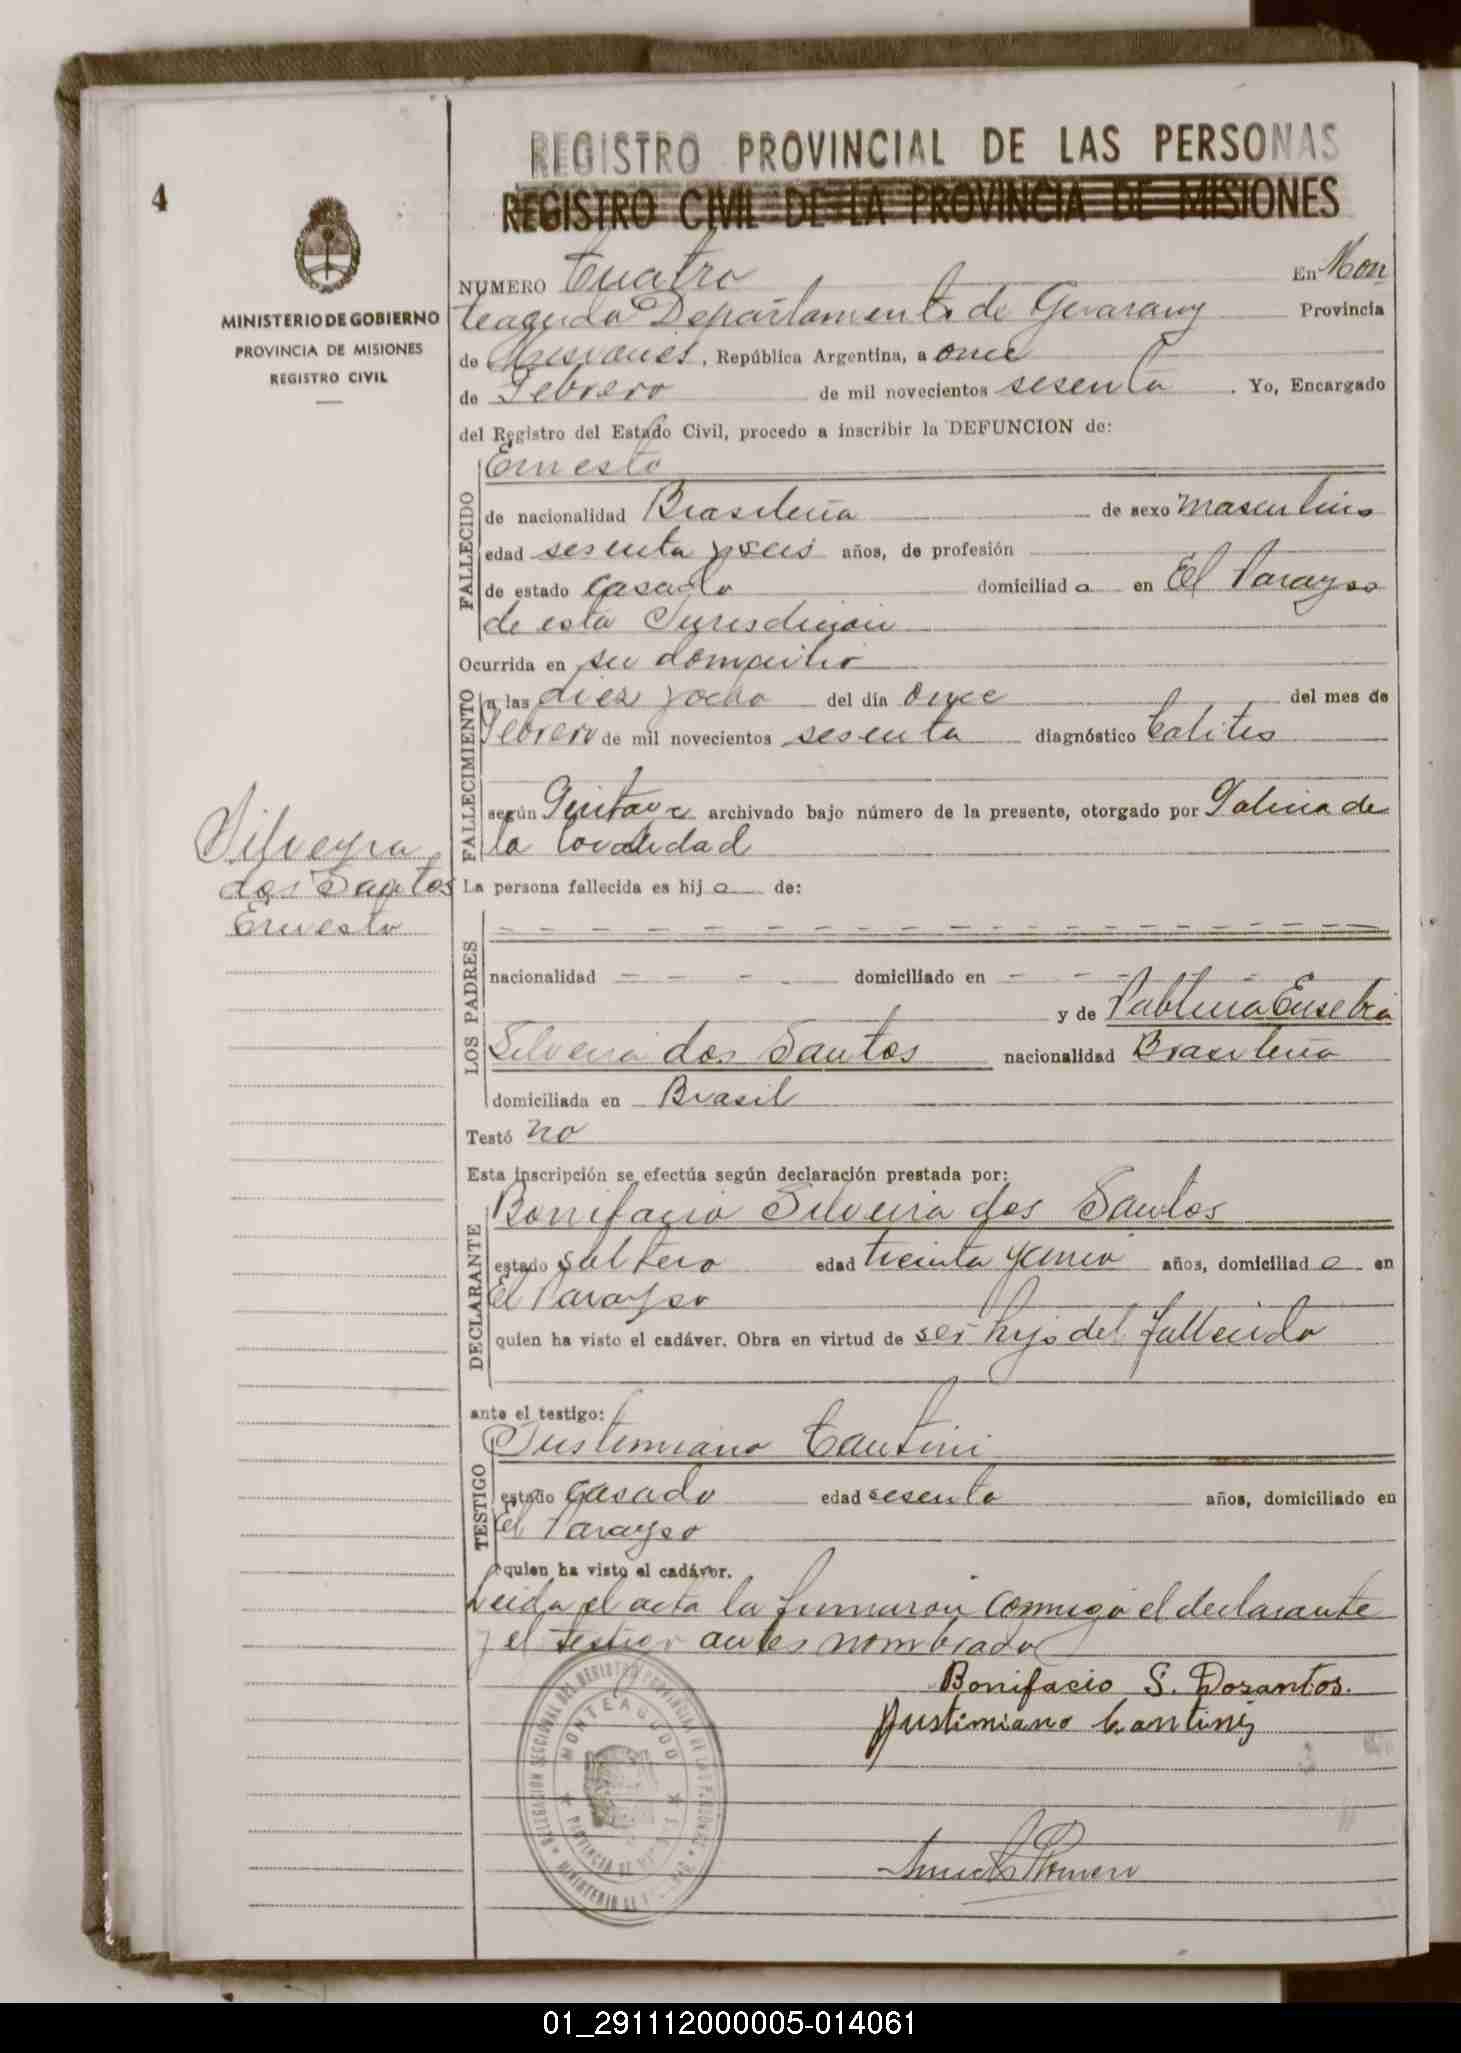 4
REGISTRO PROVINCIAL DE LAS PERSONAS
REGISTRO CIVIL DE LA PROVINCIA DE MISIONES
MINISTERIO DE GOBIERNO
PROVINCIA DE MISIONES
REGISTRO CIVIL
NUMERO Cuatro En Mon
teagudo Departamento de Guarany Provincia
de Misiones, República Argentina, a once
de Febrero de mil novecientos sesenta. Yo, Encargado
del Registro del Estado Civil, procedo a inscribir la DEFUNCION de:
Ernesto
FALLECIDO
de nacionalidad Brasileña de sexo masculino
edad sesenta y seis años, de profesión
de estado casado domiciliado en El Parayso
de esta Jurisdición
Ocurrida en su domicilio
FALLECIMIENTO
a las diez y ocho del día once del mes de
Febrero de mil novecientos sesenta diagnóstico Colitis
según archivado bajo número de la presente, otorgado por Policia de
la localidad
Silveyra
dos Santos
Ernesto
La persona fallecida es hijo de:
LOS PADRES
nacionalidad - - - domiciliado en - - - - -
y de Pablina Eusebia
Silveira dos Santos nacionalidad Brasileña
domiciliada en Brasil
Testó no
Esta inscripción se efectúa según declaración prestada por:
DECLARANTE
Bonifacio Silveira dos Santos
estado soltero edad treinta y cinco años, domiciliado en
El Parayso
quien ha visto el cadáver. Obra en virtud de ser hijo del fallecido
ante el testigo:
TESTIGO
Justimiano Cantini
estado casado edad sesenta años, domiciliado en
El Parayso
quien ha visto el cadáver.
Leida el acta la firmaron conmigo el declarante
y el testigo antes nombrado
Bonifacio S. Dosantos.
Justimiano Cantini
DELEGACION SECCIONAL DEL REGISTRO PROVINCIAL DE LAS PERSONAS
MONTEAGUDO
01_291112000005-014061